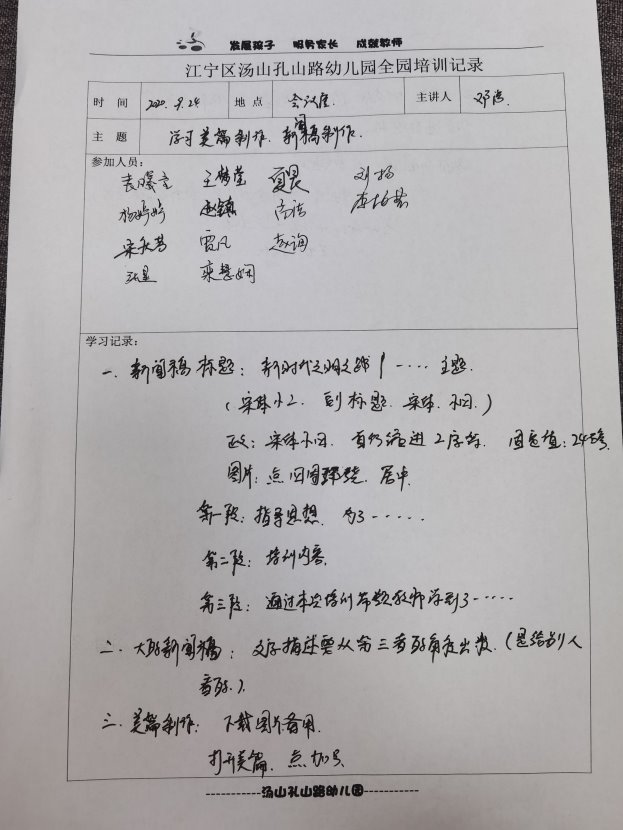 发展孩子 服务家长 成就教师
江宁区汤山孔山路幼儿园全园培训记录
时 间 2020.9.24 地 点 会议室 主讲人 邓
主 题 学习美篇制作、新闻稿制作.
参加人员:
王梦莹 夏晨 刘杨
杨婷婷 赵 高洁
雷凡 赵询
张星
学习记录:
一、新闻稿标题:新时代文明之路 | ····· 主题.
(宋体小二. 副标题. 宋体. 小四.)
正文:宋体小四. 首行缩进2字符. 固定值:24磅.
图片:点四周环绕. 居中.
第一段:指导思想. 为了······
第二段:培训内容.
第三段:通过本次培训 教师学到了·····
二、大 新闻稿:文字描述要从第三者 角度出发.(是给别人
看 .).
三、美篇制作: 下载图片备用.
打开美篇. 点加号.
------------汤山孔山路幼儿园------------